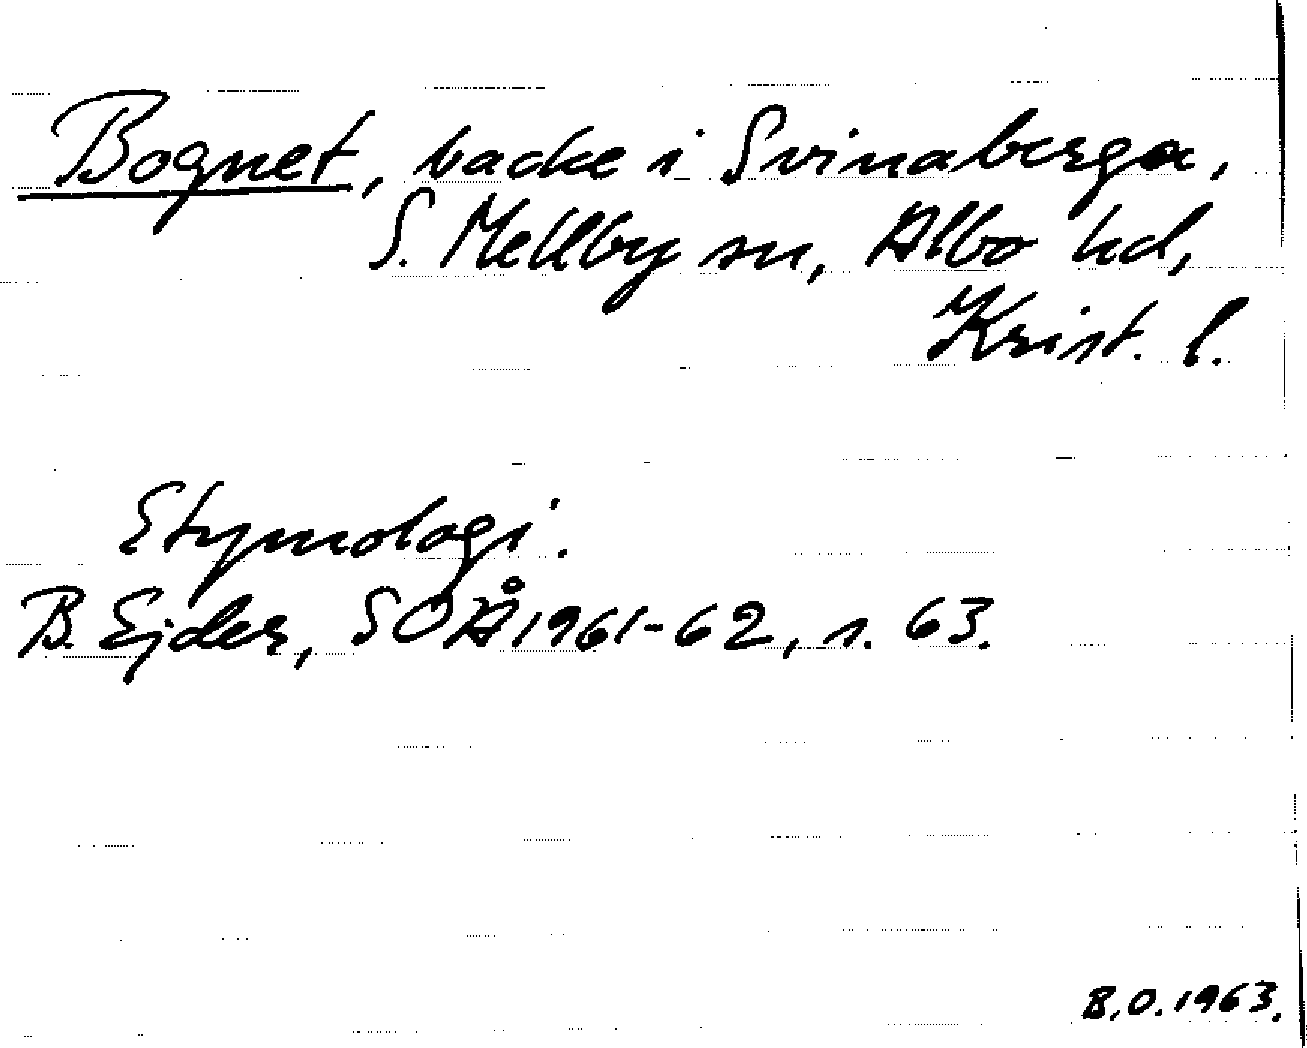 Bognet, backe i Svinaberga,
S. Mellby sn, Albo hd,
Krist. l.
Etymologi.
B. Ejder, SOÅ 1961-62, s. 63.
B.O. 1963.